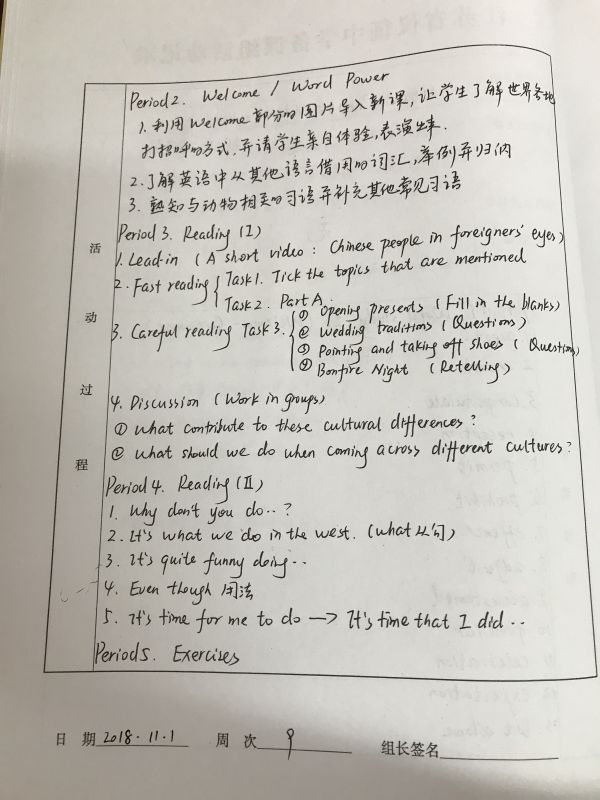 Period 2. Welcome / Word Power
1. 利用Welcome部分的图片导入新课,让学生了解世界各地
打招呼的方式.并请学生亲自体验,表演出来.
2.了解英语中从其他语言借用的词汇,举例并归纳
3. 熟知与动物相关的习语并补充其他常见习语
Period 3. Reading (I)
1. Lead-in (A short video: Chinese people in foreigners' eyes)
2. Fast reading { Task 1. Tick the topics that are mentioned
Task 2. Part A
3. Careful reading Task 3. { ① Opening presents (Fill in the blanks)
② Wedding traditions (Questions)
③ Pointing and taking off shoes (Questions)
④ Bonfire Night (Retelling)
4. Discussion (Work in groups)
① What contribute to these cultural differences?
② What should we do when coming across different cultures?
Period 4. Reading (II)
1. Why don't you do..?
2. It's what we do in the west. (what从句)
3. It's quite funny doing..
4. Even though 用法
5. It's time for me to do → It's time that I did..
Period 5. Exercises
活动过程
日 期 2018.11.1 周 次 9 组长签名